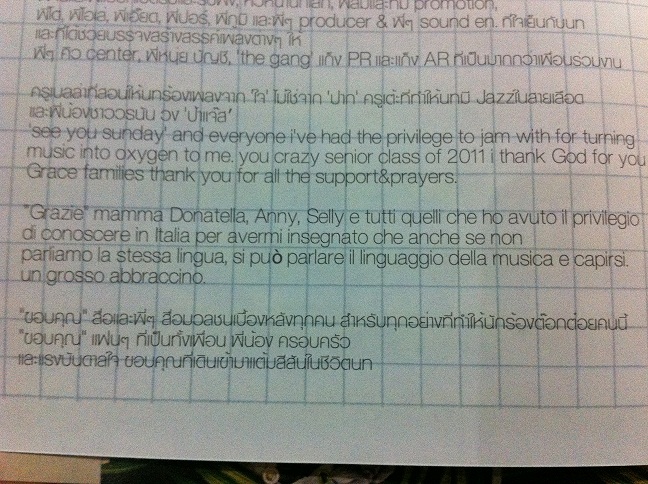 promotion,
producer & พี่ๆ sound en. ที่ใจเย็นกับนก
และที่ได้ช่วยบรรจงสร้างสรรค์เพลงต่างๆ ให้
พี่ๆ คิว center, พี่หนุ่ย บัญชี, 'the gang' แก๊ง PR และแก๊ง AR ที่เป็นมากกว่าเพื่อนร่วมงาน
ที่สอนให้นกร้องเพลงจาก 'ใจ' ไม่ใช่จาก 'ปาก' ครูเต๋ะที่ทำให้นกมี Jazzในสายเลือด
และพี่น้องชาวดรุณัม วง 'ป้าแจ๊ส'
'see you sunday' and everyone i've had the privilege to jam with for turning
music into oxygen to me. you crazy senior class of 2011 i thank God for you
Grace families thank you for all the support&prayers.
"Grazie" mamma Donatella, Anny, Selly e tutti quelli che ho avuto il privilegio
di conoscere in Italia per avermi insegnato che anche se non
parliamo la stessa lingua, si può parlare il linguaggio della musica e capirsi.
un grosso abbraccino.
"ขอบคุณ" สื่อและพี่ๆ สื่อมวลชนเบื้องหลังทุกคน สำหรับทุกอย่างที่ทำให้นักร้องต๊อกต๋อยคนนี้
"ขอบคุณ" แฟนๆ ที่เป็นทั้งเพื่อน พี่น้อง ครอบครัว
และแรงบันดาลใจ ขอบคุณที่เดินเข้ามาแต้มสีสันในชีวิตนก